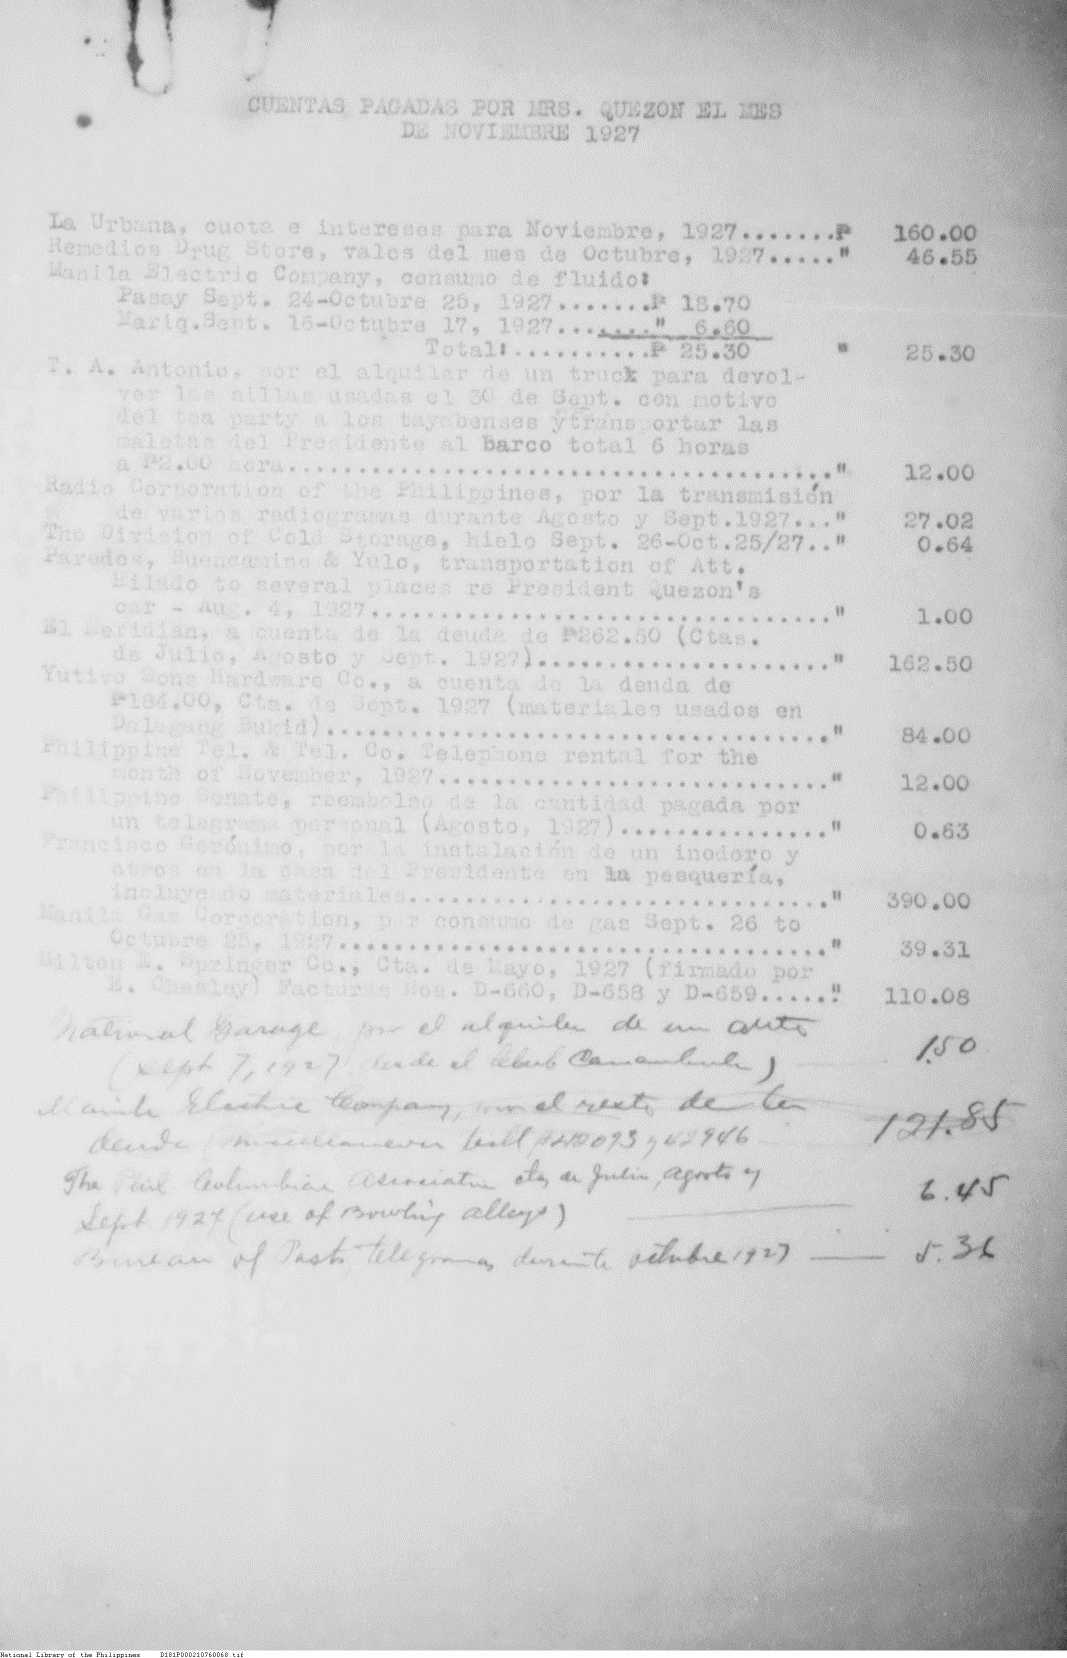 CUENTAS PAGADAS POR MRS. QUEZON EL MES
DE NOVIEMBRE 1927
La Urbana, cuota e intereses para Noviembre, 1927.......₱ 160.00
Remedios Drug Store, vales del mes de Octubre, 1927....." 46.55
Manila Electric Company, consumo de fluido:
Pasay Sept. 24-Octubre 25, 1927.......₱ 18.70
Mariq.Sept. 16-Octubre 17, 1927......." 6.60
Total:...........₱ 25.30 " 25.30
T. A. Antonio, por el alquilar de un truck para devol-
ver las sillas usadas el 30 de Sept. con motivo
del tea party a los tayabenses ytransportar las
maletas del Presidente al barco total 6 horas
a ₱2.00 hora......................................" 12.00
Radio Corporation of the Philippines, por la transmisión
de varios radiogramas durante Agosto y Sept.1927..." 27.02
The Division of Cold Storage, hielo Sept. 26-Oct.25/27.." 0.64
Paredes, Buencamino & Yulo, transportation of Att.
Hilado to several places re President Quezon's
car - Aug. 4, 1927................................" 1.00
El Meridian, a cuenta de la deuda de ₱262.50 (Ctas.
de Julio, Agosto y Sept. 1927)....................." 162.50
Yutivo Sons Hardware Co., a cuenta de la deuda de
₱184.00, Cta. de Sept. 1927 (materiales usados en
Dalagang Bukid)..................................." 84.00
Philippine Tel. & Tel. Co. Telephone rental for the
month of November, 1927..........................." 12.00
Philippine Senate, reembolso de la cantidad pagada por
un telegrama personal (Agosto, 1927)..............." 0.63
Francisco Gerónimo, por la instalación de un inodoro y
otros en la casa del Presidente en la pesquería,
incluyendo materiales............................." 390.00
Manila Gas Corporation, por consumo de gas Sept. 26 to
Octubre 25, 1927.................................." 39.31
Milton E. Springer Co., Cta. de Mayo, 1927 (firmado por
E. Chesley) Facturas Nos. D-660, D-658 y D-659....." 110.08
National Garage, por el alquiler de un auto
(Sept 7, 1927 desde el Club ) 1.50
Manila Electric Company, por el resto de la
deuda (miscellaneous bill 42946 121.85
The Phil. Columbian Association ctas de Julio, agosto y
Sept 1927 (use of Bowling alleys) 6.45
Bureau of Posts telegramas durante octubre 1927 5.36
National Library of the Philippines D181P000210760068.tif